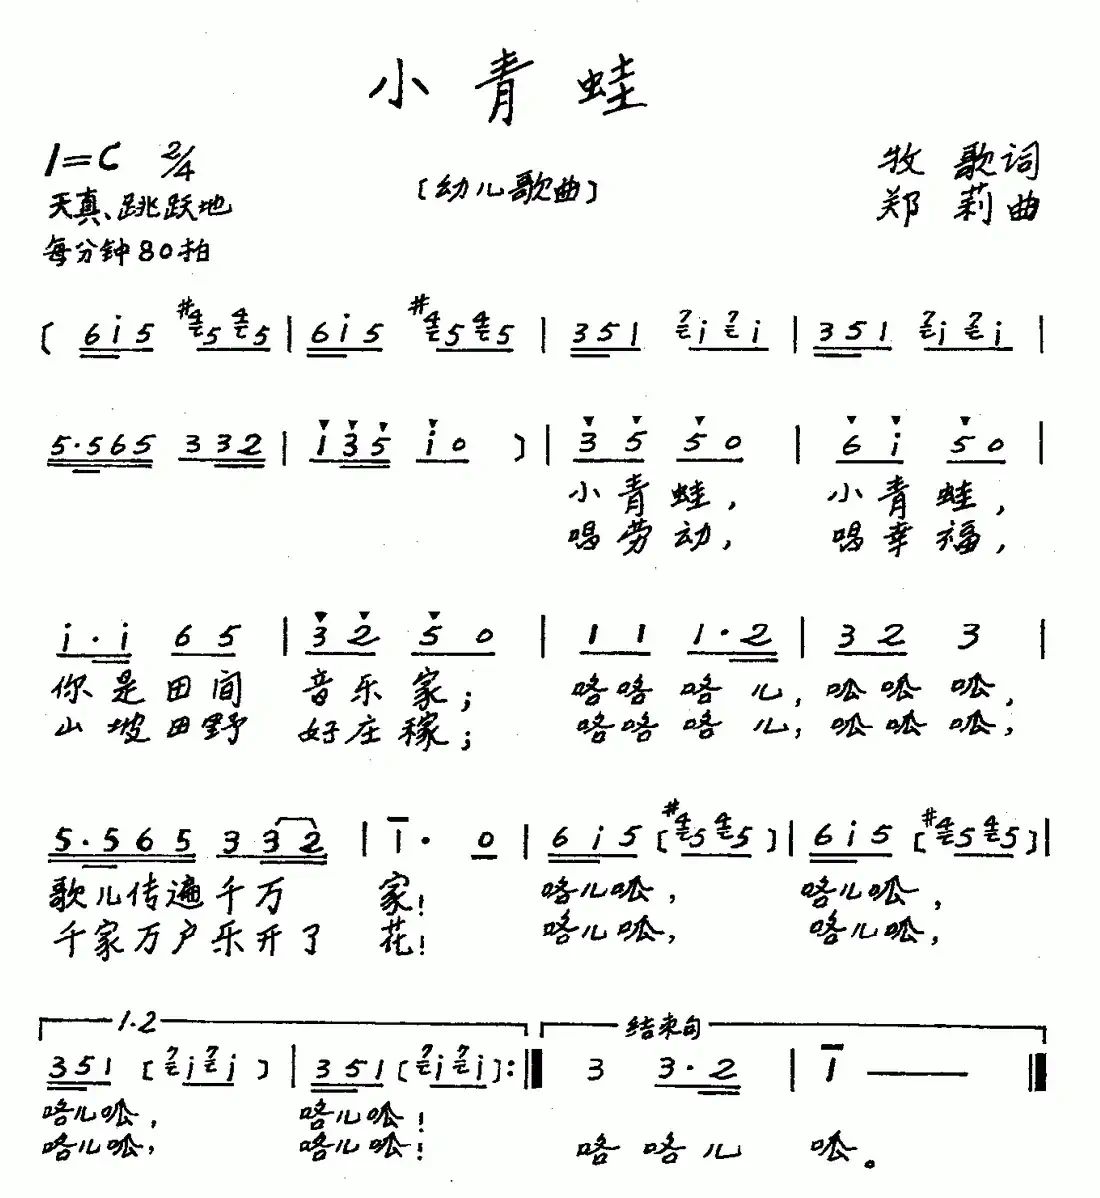 小青蛙
1=C 2/4
〔幼儿歌曲〕
牧歌词
天真、跳跃地
郑莉曲
每分钟80拍
〔 6i5 #4545 | 6i5 #4545 | 351 7i7i | 351 7i7i |
5·565 332 | 135 i0 〕 | 35 50 | 6i 50 |
小青蛙, 小青蛙,
唱劳动, 唱幸福,
i·i 65 | 32 50 | 11 1·2 | 32 3 |
你是田间 音乐家; 咯咯咯儿, 呱呱呱,
山坡田野 好庄稼; 咯咯咯儿, 呱呱呱,
5·565 332 | 1· 0 | 6i5 〔#4545〕 | 6i5 〔#4545〕 |
歌儿传遍千万 家! 咯儿呱, 咯儿呱,
千家万户乐开了 花! 咯儿呱, 咯儿呱,
1.2 结束句
351 〔7i7i〕 | 351 〔7i7i〕 :‖ 3 3·2 | 1 — ‖
咯儿呱, 咯儿呱!
咯儿呱, 咯儿呱! 咯 咯儿 呱。